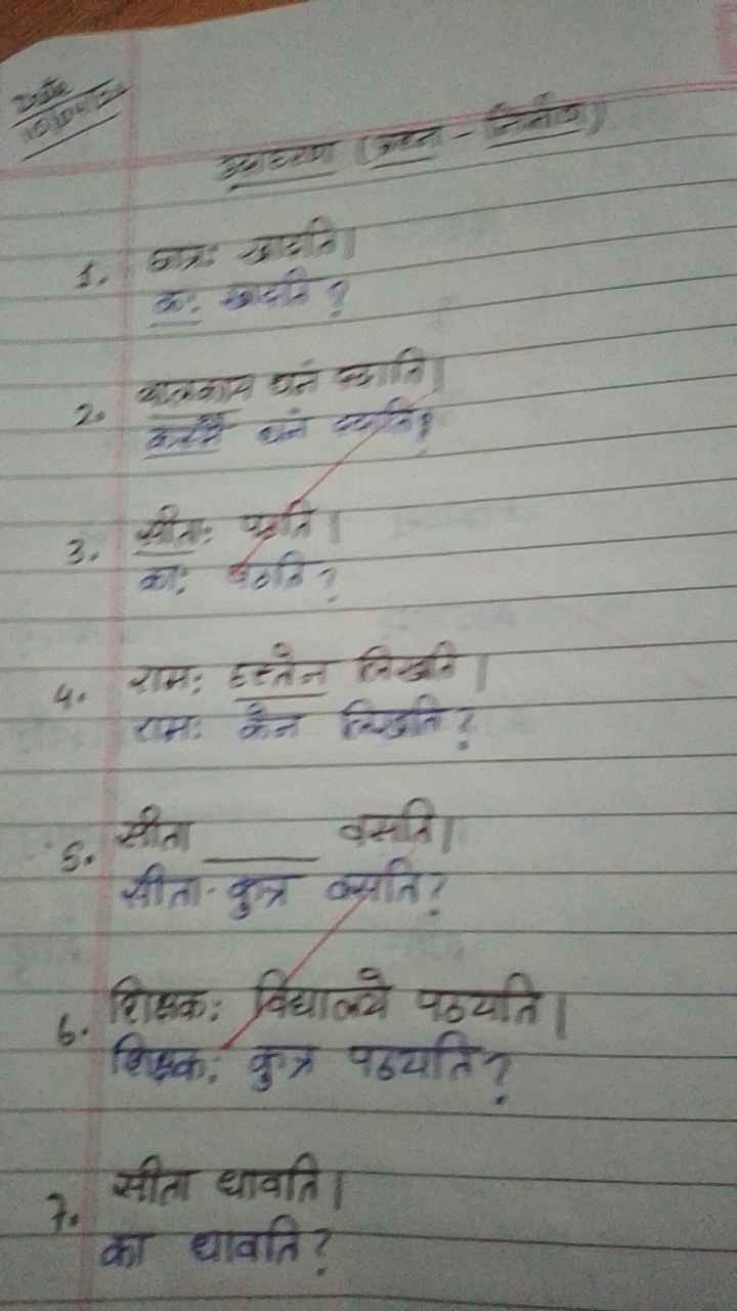 Date
उदाहरण (प्रश्न - निर्माण)
1. छात्रः खादति।
कः खादति?
2. बालकाय धनं ददाति।
कस्मै धनं ददाति?
3. सीताः पठति।
काः पठति?
4. रामः हस्तेन लिखति।
रामः केन लिखति?
5. सीता ______ वसति।
सीता कुत्र वसति?
6. शिक्षकः विद्यालये पठयति।
शिक्षकः कुत्र पठयति?
7. सीता धावति।
का धावति?